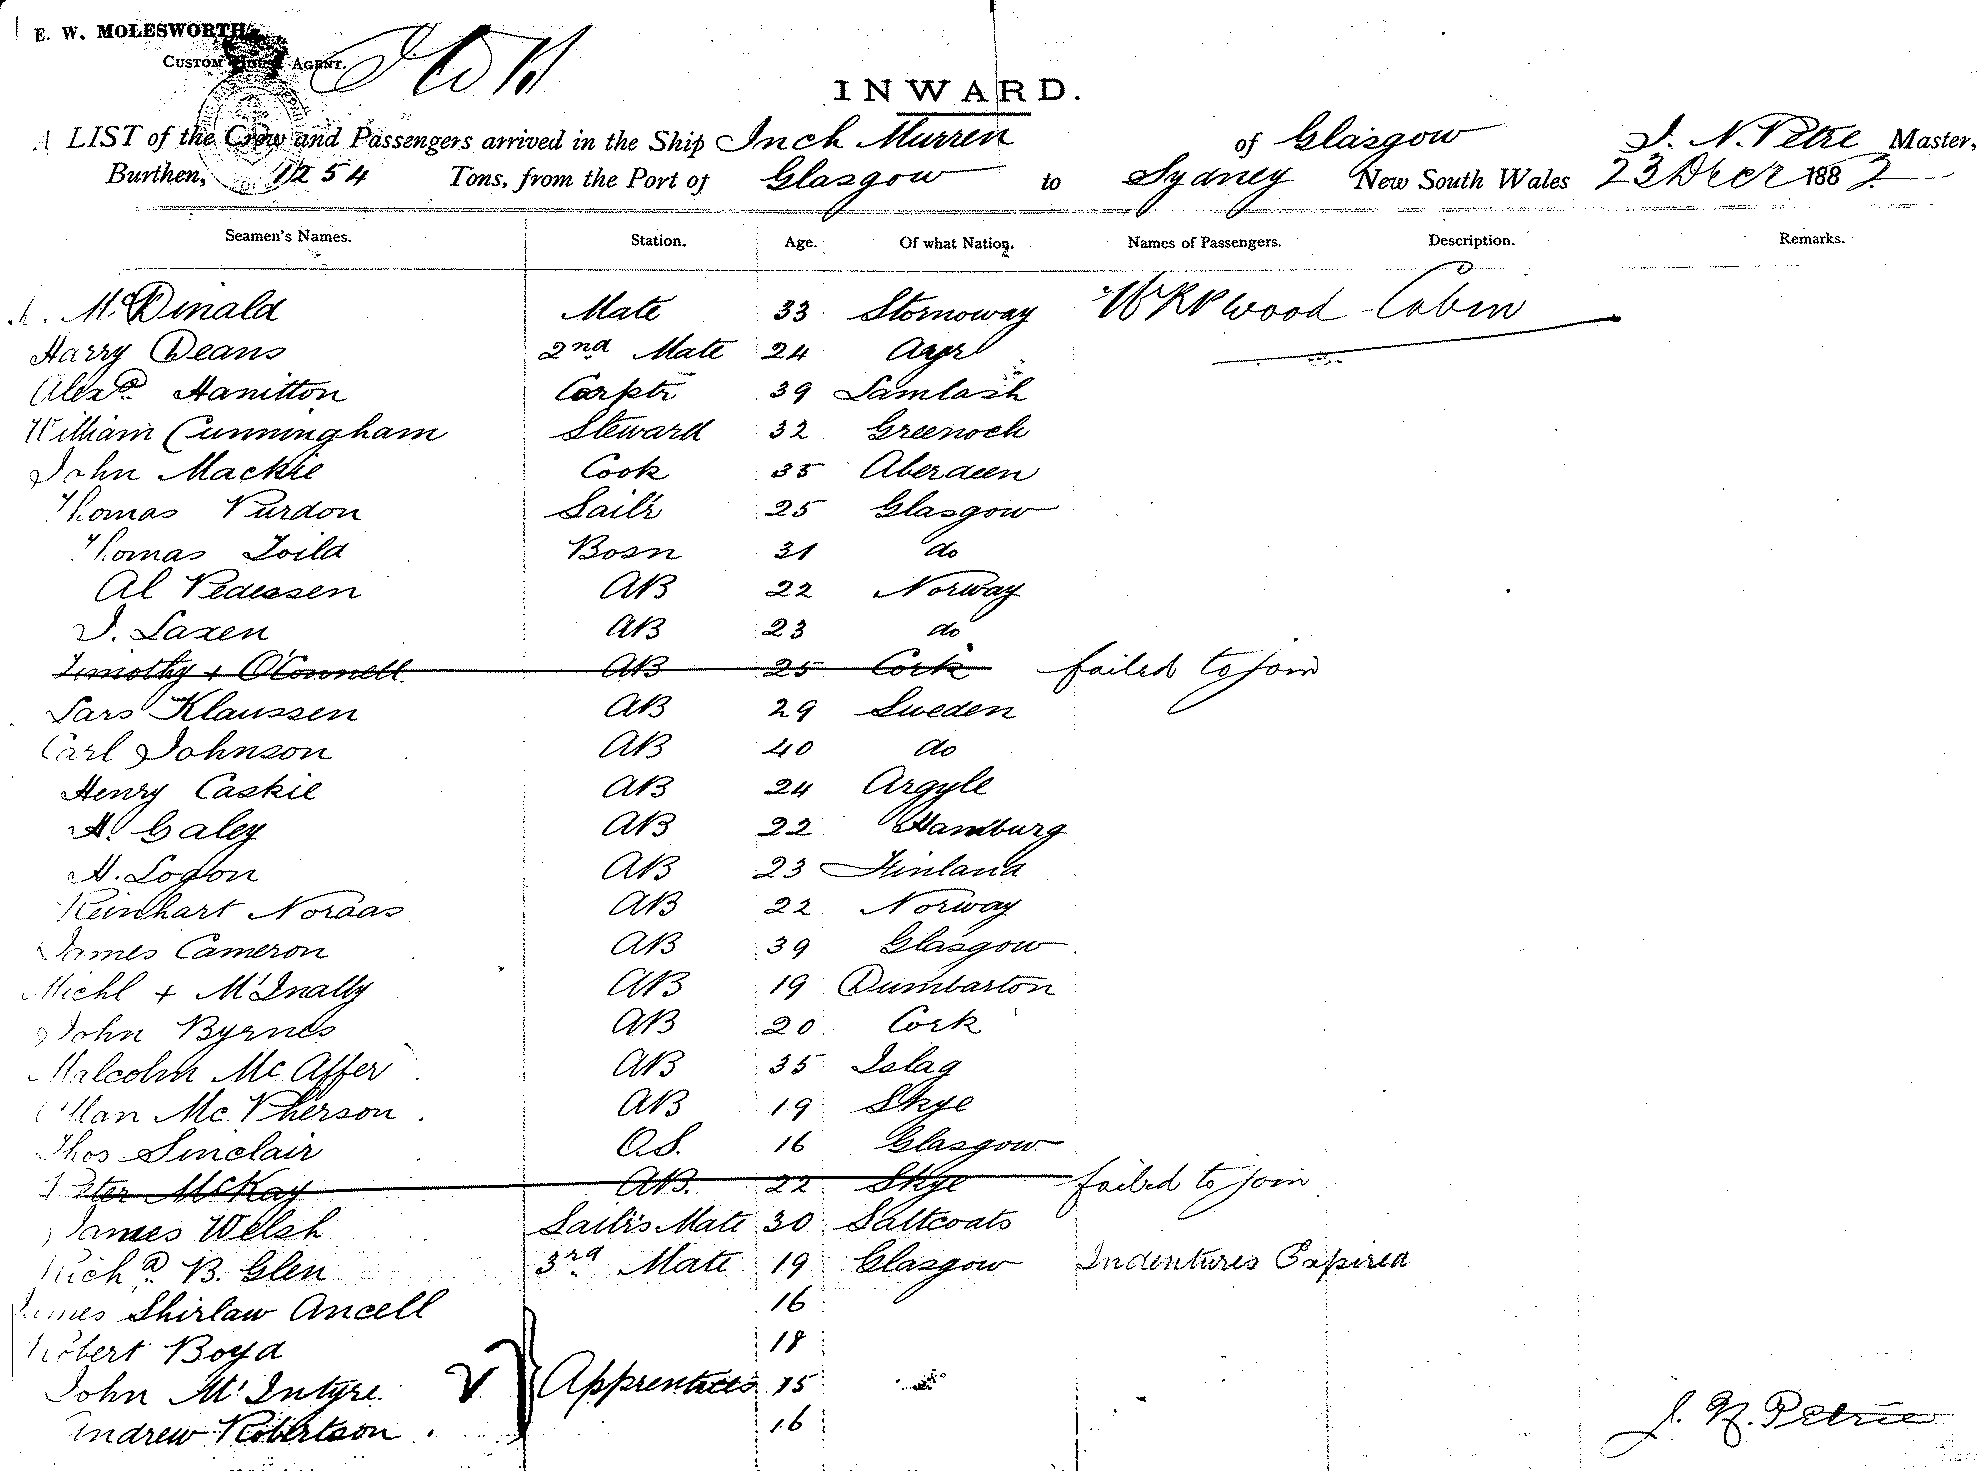 E. W. MOLESWORTH,
CUSTOM HOUSE AGENT.
INWARD.
A LIST of the Crew and Passengers arrived in the Ship Inch Murren of Glasgow J. N. Petre Master,
Burthen, 1254 Tons, from the Port of Glasgow to Sydney New South Wales 23 Decr 1882
Seamen's Names. Station. Age. Of what Nation. Names of Passengers. Description. Remarks.
McDinald Mate 33 Stornoway W R P Wood Cabin
Harry Deans 2nd Mate 24 Ayr
Alexr Hamitton Carptr 39 Lamlash
William Cunningham Steward 32 Greenock
John Mackie Cook 35 Aberdeen
Thomas Purdon Sailr 25 Glasgow
Thomas Toild Bosn 31 do
Al Pedessen AB 22 Norway
J. Laxen AB 23 do
Timothy + O'Connell AB 25 Cork failed to join
Lars Klaussen AB 29 Sweden
Carl Johnson AB 40 do
Henry Caskie AB 24 Argyle
A. Galey AB 22 Hamburg
A. Logon AB 23 Finland
Reinhart Noraas AB 22 Norway
James Cameron AB 39 Glasgow
Michl + McInally AB 19 Dumbarton
John Byrnes AB 20 Cork
Malcolm Mc Affer AB 35 Islay
Allan Mc Pherson AB 19 Skye
Thos Sinclair O.S. 16 Glasgow
Peter McKay AB. 22 Skye failed to join
James Welsh Sailr's Mate 30 Saltcoats
Richd B. Glen 3rd Mate 19 Glasgow Indentures Expired
James Shirlaw Ancell 16
Robert Boyd 18
John McIntyre Apprentices 15
Andrew Robertson 16
J. N. Petrie